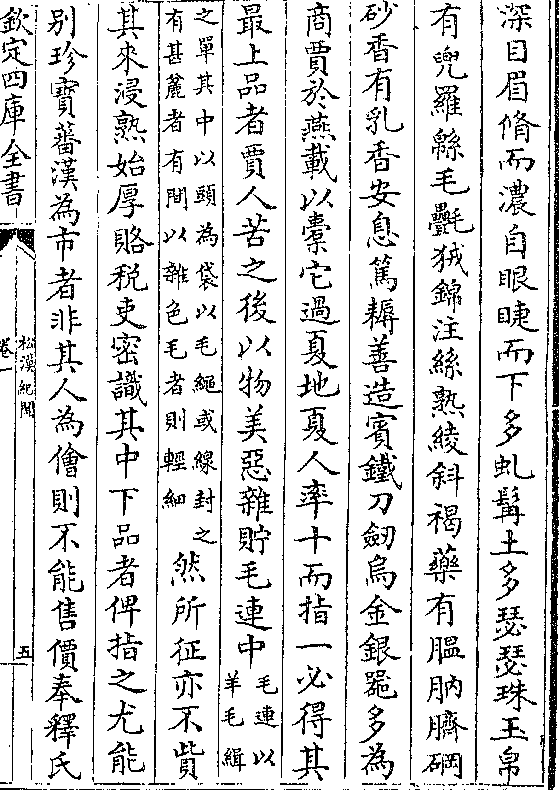 深目眉脩而濃自眼睫而下多虬髯土多瑟瑟珠玉帛
有兜羅緜毛㲲狨錦注絲熟綾斜褐藥有膃肭臍硇
砂香有乳香安息篤耨善造賓鐵刀劒烏金銀器多為
商賈於燕載以橐它過夏地夏人率十而指一必得其
最上品者賈人苦之後以物美惡雜貯毛連中毛連以羊毛緝
之單其中以頭為袋以毛繩或線封之有甚麄者有間以雜色毛者則輕細然所征亦不貲
其來浸熟始厚賂稅吏密識其中下品者俾指之尤能
別珍寳蕃漢為市者非其人為儈則不能售價奉釋氏
欽定四庫全書
松漠紀聞
卷一
五